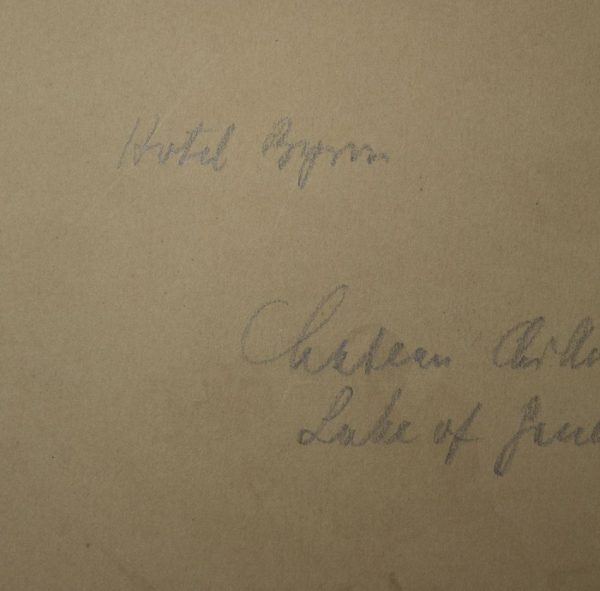 Hotel Byron
Chateau Chillo
Lake of Gene